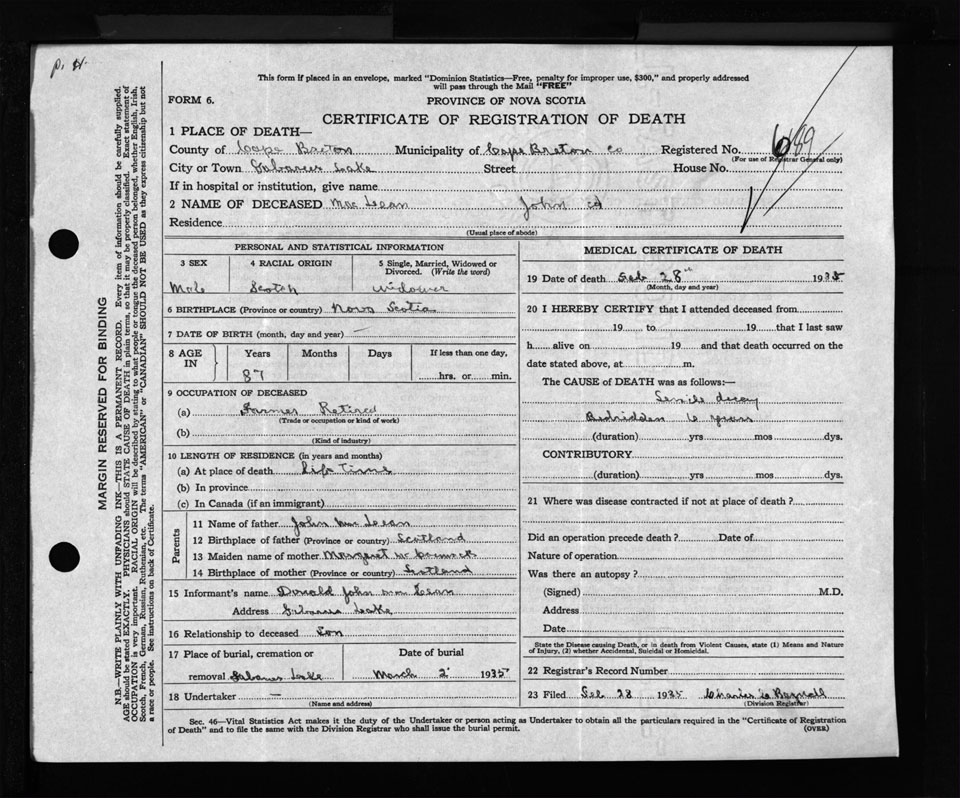 P. H.
This form if placed in an envelope, marked "Dominion Statistics—Free, penalty for improper use, $300," and properly addressed
will pass through the Mail "FREE"
FORM 6.
PROVINCE OF NOVA SCOTIA
CERTIFICATE OF REGISTRATION OF DEATH
1 PLACE OF DEATH—
County of Cape Breton Municipality of Cape Breton Co Registered No. 689
(For use of Registrar General only)
City or Town Gabarus Lake Street House No.
If in hospital or institution, give name
2 NAME OF DECEASED Mac Lean John
Residence
(Usual place of abode)
PERSONAL AND STATISTICAL INFORMATION
3 SEX 4 RACIAL ORIGIN 5 Single, Married, Widowed or Divorced. (Write the word)
Male Scotch Widower
6 BIRTHPLACE (Province or country) Nova Scotia
7 DATE OF BIRTH (month, day and year) —
8 AGE IN Years Months Days If less than one day,
87 hrs. or min.
9 OCCUPATION OF DECEASED
(a) Farmer Retired
(Trade or occupation or kind of work)
(b)
(Kind of industry)
10 LENGTH OF RESIDENCE (in years and months)
(a) At place of death Life Time
(b) In province
(c) In Canada (if an immigrant)
Parents
11 Name of father John Mac Lean
12 Birthplace of father (Province or country) Scotland
13 Maiden name of mother Margaret
14 Birthplace of mother (Province or country) Scotland
15 Informant's name Donald John Mac Lean
Address Gabarus Lake
16 Relationship to deceased Son
17 Place of burial, cremation or Date of burial
removal Gabarus Lake March 2 1935
18 Undertaker —
(Name and address)
MEDICAL CERTIFICATE OF DEATH
19 Date of death Feb 28th 1935
(Month, day and year)
20 I HEREBY CERTIFY that I attended deceased from
19 to 19 that I last saw
h alive on 19 and that death occurred on the
date stated above, at m.
The CAUSE of DEATH was as follows:—
Senile decay
Bedridden 6 years
(duration) yrs mos dys.
CONTRIBUTORY
(duration) yrs mos dys.
21 Where was disease contracted if not at place of death?
Did an operation precede death? Date of
Nature of operation
Was there an autopsy?
(Signed) M.D.
Address
Date
State the Disease causing Death, or in death from Violent Causes, state (1) Means and Nature
of Injury, (2) whether Accidental, Suicidal or Homicidal.
22 Registrar's Record Number
23 Filed Feb 28 1935 Charles
(Division Registrar)
Sec. 46—Vital Statistics Act makes it the duty of the Undertaker or person acting as Undertaker to obtain all the particulars required in the "Certificate of Registration
of Death" and to file the same with the Division Registrar who shall issue the burial permit.
(OVER)
MARGIN RESERVED FOR BINDING
N.B.—WRITE PLAINLY WITH UNFADING INK—THIS IS A PERMANENT RECORD. Every item of information should be carefully supplied.
AGE should be stated EXACTLY. PHYSICIANS should STATE CAUSE OF DEATH in plain terms, so that it may be properly classified. Exact statement of
OCCUPATION is very important. RACIAL ORIGIN will be described by stating to what people or tongue the deceased person belonged, whether English, Irish,
Scotch, French, German, Russian, Ruthenian, etc. The terms "AMERICAN" or "CANADIAN" SHOULD NOT BE USED as they express citizenship but not
a race or people. See instructions on back of Certificate.